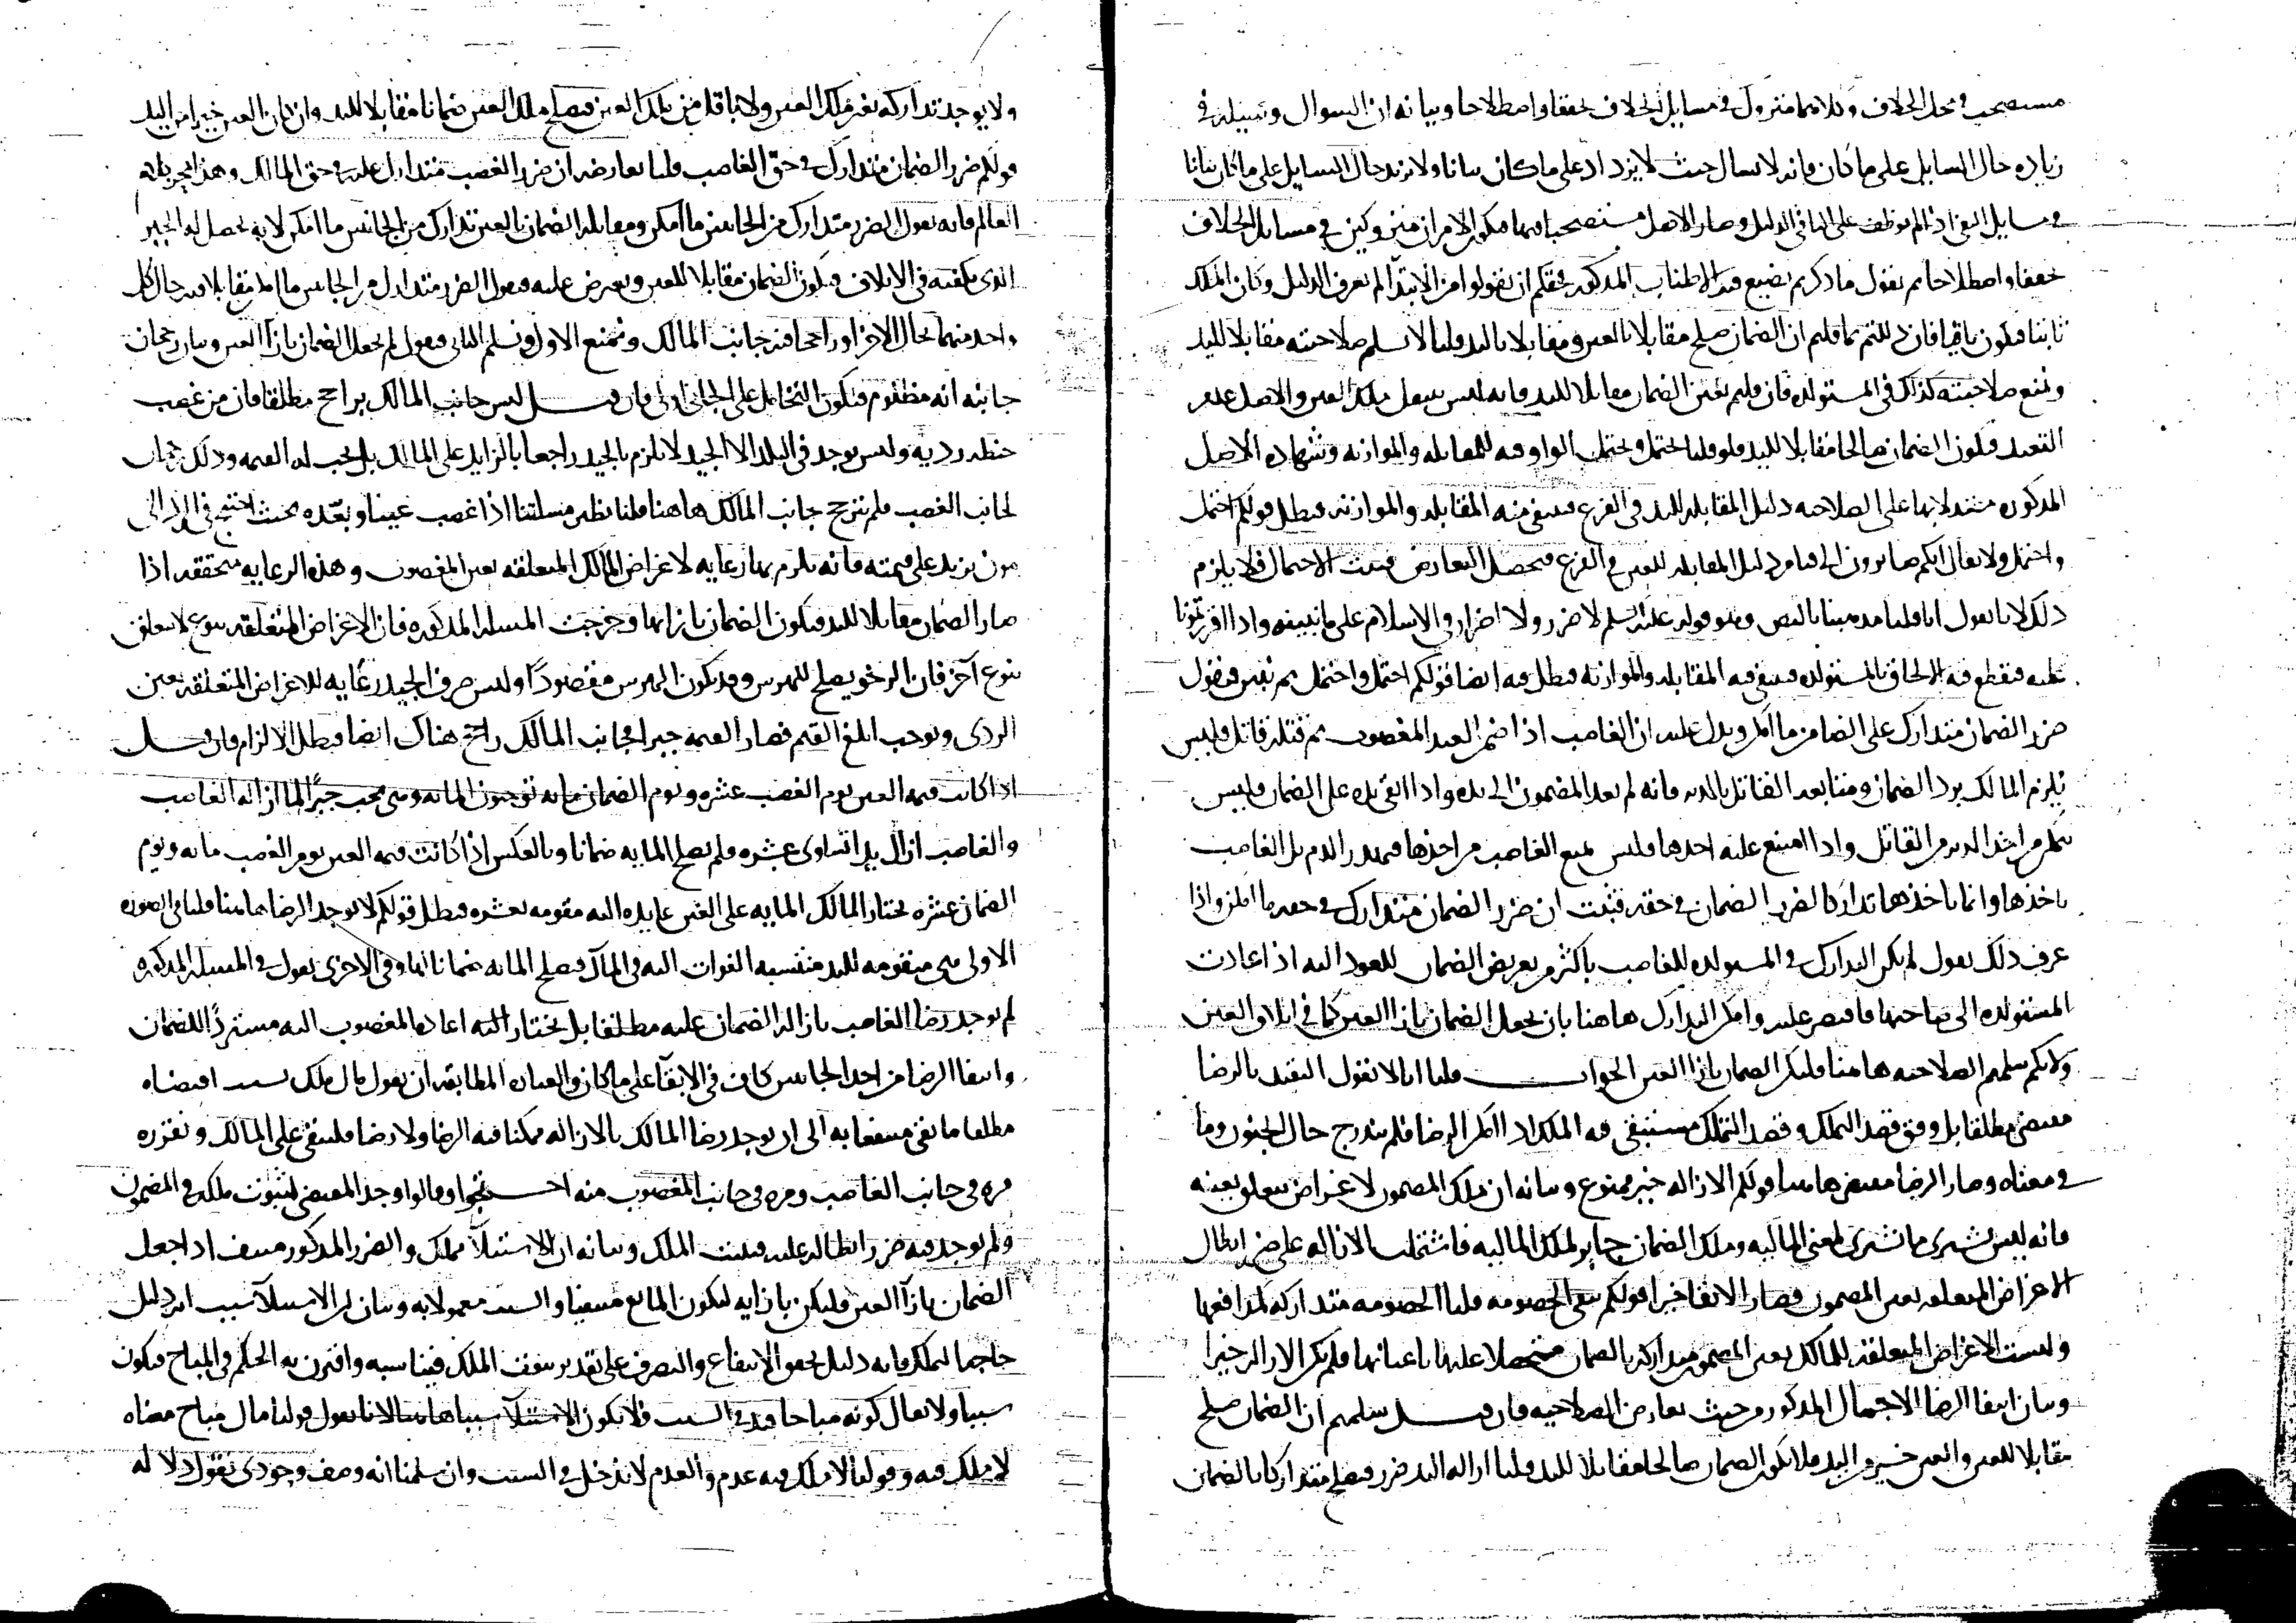 مستصحب في محل الخلاف وكلاهما متروك في مسايل الخلاف تحققا واصطلاحا وبيانه ان السوال وتمييله في
زياده حال السايل على ما كان فانه لا يسال حيث لا يزداد على ما كان بيانا ولا يزيد حال السايل على ما كان بيانا
في مسايل النفي اذ لم يوظف على النافي الدليل وصار الاصل مستصحبا فيها فيكون الامران متروكين في مسايل الخلاف
تحققا واصطلاحا ثم نقول ما ذكرتم تضييع فيه الاطناب المذكور بحقكم ان تقولوا من الابتدآ لم نعرف الدليل وكان الملك
ثابتا فيكون باقيا فان دللتم بما قلتم ان الضمان صلح مقابلا بالعين ومقابلا باليد قلنا لا نسلم صلاحيته مقابلا لليد
ونمنع صلاحيته كذلك في المستولده فان قلتم تعين الضمان مقابلا لليد فانه ليس ينتقل ملك العين والاصل عدم
التعبد فيكون الضمان صالحا مقابلا لليد فلو قلنا احتمل ويحتمل الواو فيه للمقابله والموازنه وشهاده الاصل
المذكوره مستدلا بها على الصلاحيه دليل المقابله لليد في الفرع فينتفى منه المقابله والموازنه فبطل قولكم احتمل
واحتمل ولا يقال انكم صايرون الى قيام دليل المقابله للعين في الفرع فيحصل التعارض فيثبت الاحتمال فلا يلزم
ذلك لانا نقول انا قلنا مذهبنا بالنص وهو قوله عليه السلم لا ضرر ولا اضرار في الاسلام على ما نبينه واذا اقررتمونا
عليه فنقطع فيه الالحاق بالمستولده فينتفى فيه المقابله والموازنه فبطل فيه ايضا قولكم احتمل واحتمل ثم نفس فنقول
ضرر الضمان متدارك على الضامن ما امكن ويدل عليه ان الغاصب اذا ضمن العبد المغصوب ثم قتله قاتل فليس
يلزم المالك برد الضمان ومتابعه القاتل بالديه فانه لم يعد المضمون الى يده واذا القى يده على الضمان فليس
يمكن من اخذ الديه من القاتل واذا امتنع عليه احدها فليس يمنع الغاصب من اخذها فيهدر الدم بل الغاصب
ياخذها وانما ياخذها تداركا لضرر الضمان في حقه فثبت ان ضرر الضمان متدارك في حقه ما امكن واذا
عرف ذلك نقول لم يكن التدارك في المستولده للغاصب باكثر من تعريض الضمان للعود اليه اذا عادت
المستولده الى صاحبها فاقتصر عليه وامكن التدارك هاهنا بان يجعل الضمان بازا العين كما في اتلاف العين
ولانكم سلمتم الصلاحيه هاهنا فليكن الضمان بازا العين الجواب قلنا انا لا نقول التقيد بالرضا
مقتضى مطلقا بل وفق قصد التملك وقصد التملك مستبقى فيه الملك اذا امكن الرضا فلم يندرج حال الجنون وما
في معناه وصار الرضا مقتضى هاهنا قولكم الازاله خير ممنوع وبيانه ان ملك المضمون لاغراض تتعلق بعينه
فانه ليس يشترى ما يشترى لمعنى الماليه وملك الضمان جابر لملك الماليه فاشتملت الازاله على ضرر ابطال
الاغراض المتعلقه بعين المضمون فصار الابقا خيرا قولكم تبقى الخصومه قلنا الخصومه متداركه لمدافعها
وليست الاغراض المتعلقه للمالك بعين المضمون متداركه بالضمان متحصلا عليها باعيانها فلم يكن الازاله خيرا
وبيان انتفا الرضا الاجمال المذكور من حيث تعارض الصلاحيه فان قيل سلمتم ان الضمان صلح
مقابلا للعين والعين خير من اليد فلا يكون الضمان صالحا مقابلا لليد قلنا ازاله اليد ضرر فيصلح متداركا بالضمان
ولا يوجد تداركه بغير ملك العين ولا باقل من ملك العين فيصلح ملك العين ضمانا مقابلا لليد وان كان العين خيرا من اليد
قولكم ضرر الضمان متدارك في حق الغاصب قلنا يعارضه ان ضرر الغصب متدارك عليه في حق المالك وهذا يجري
العالم فانه نقول الضرر متدارك من الجانبين ما امكن ومقابله الضمان بالعين تدارك من الجانبين ما امكن لانه يحصل له الجبر
الذي يكفيه في الاتلاف فيكون الضمان مقابلا للعين ويعترض عليه فنقول الضرر متدارك من الجانبين ما امكن مقابلا فيه حال كل
واحد منهما بحال الاخر او راجحا فيه جانب المالك ونمنع الاول ونسلم الثاني فنقول لم يجعل الضمان بازآ العين وبيان رجحان
جانبه انه مظلوم فيكون التحامل على الجاني اولى فان قيل ليس جانب المالك براجح مطلقا فان من غصب
حنطه رديه وليس يوجد في البلد الا الجيد لا يلزم بالجيد راجعا بالزايد على المالك بل يجب له القيمه وذلك
لجانب الغصب فلم نترجح جانب المالك هاهنا قلنا نظير مسلتنا اذا غصب عينا وبعده بحيث احتيج في الرد الى
مون يزيد على قيمته فانه يلزم بها رعايه لاغراض المالك المتعلقه بعين المغصوب وهذه الرعايه متحققه اذا
صار الضمان مقابلا لليد فيكون الضمان بازايها وخرجت المسله المذكوره فان الاغراض المتعلقه بنوع لا تتعلق
بنوع آخر فان الرخو يصلح للهرس وقد يكون الهرس مقصودًا وليس صرف الجيد رعايه للاغراض المتعلقه بعين
الردى ونوجب ابلغ القيم فصار القيمه جبرا فجانب المالك راجح هناك ايضا فبطل الالزام فان قيل
اذا كانت قيمه العين يوم الغصب عشره ويوم الضمان مايه توجبون المايه وهي تجب جبرًا لما ازاله الغاصب
والغاصب ازال يدا تساوى عشره فلم تصلح المايه ضمانا وبالعكس اذا كانت قيمه العين يوم الغصب مايه ويوم
الضمان عشره يختار المالك المايه على العين عايده اليه مقومه بعشره فبطل قولكم لا يوجد الرضا هاهنا قلنا في الصوره
الاولى هي متقومه لليد منتسبه الفوات اليه في المآل فيصلح المايه ضمانا لها وفي الاخرى نقول في المسله المذكوره
لم يوجد رضا الغاصب بازاله الضمان عليه مطلقا بل يختار اليه اعاده المغصوب اليه مستردًا للضمان
وانتفا الرضا من احد الجانبين كاف في الابقآ على ما كان والعباره المطابقه ان نقول مال ملك بسبب اقتضاه
مطلقا ما بقى منتفعا به الى ان يوجد رضا المالك بالازاله ممكنا فيه الرضا ولا رضا فليبقى على المالك ونقرره
مره في جانب الغاصب ومره في جانب المغصوب منه احتجوا وقالوا وجد المقتضى لثبوت ملكه في المضمون
ولم يوجد فيه ضرر ابطاله عليه فيثبت الملك وبيانه ان الاستيلآ مملك والضرر المذكور منتف اذا جعل
الضمان بازآ العين فليكن بازايه ليكون المانع منتفيا والسبب معمولا به وبيان ان الاستيلآ سبب انه دليل
حاجه التملك فانه دليل نحو الانتفاع والتصرف على تقدير توقف الملك فيناسبه واقترن به الحكم في المباح فيكون
سببا ولا يقال كونه مباحا قيد في السبب فلا يكون الاستيلآ سببا هاهنا لانا نقول قولنا مال مباح معناه
لا ملك فيه وقولنا لا ملك فيه عدم والعدم لا يدخل في السبب وان سلمنا انه وصف وجودى نقول دلاله